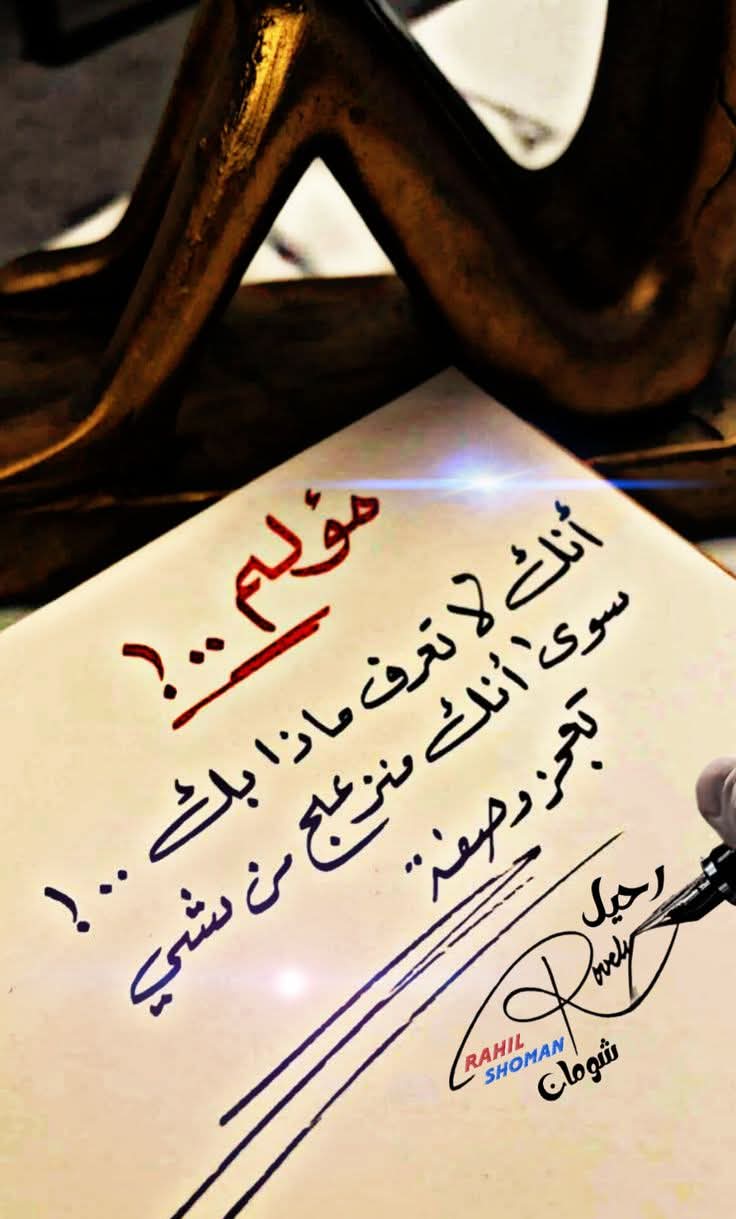 مؤلم ..!
أنك لا تعرف ماذا بك ..!
سوى أنك منزعج من شي
تعجز وصفة
رحيل
Rovely
RAHIL
SHOMAN
شومان